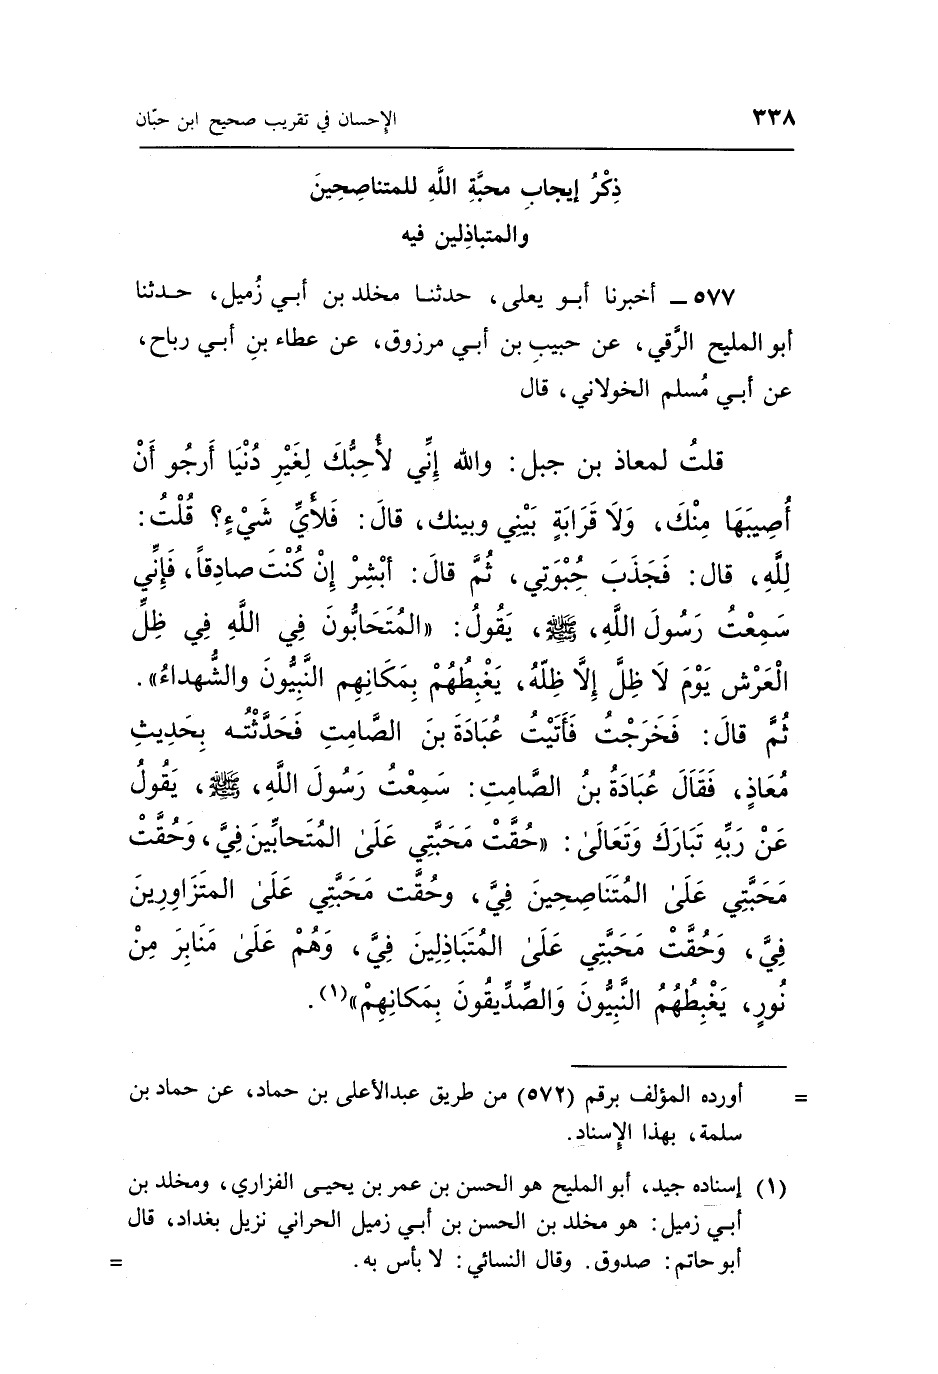 ٣٣٨ الإحسان في تقريب صحيح ابن حبّان
ذِكْرُ إيجابِ محبَّةِ اللَّهِ للمتناصِحِينَ
والمتباذِلين فيه
٥٧٧ ـ أخبرنا أبو يعلى، حدثنا مخلد بن أبي زُميل، حدثنا
أبو المليح الرَّقي، عن حبيبِ بن أبي مرزوق، عن عطاء بنِ أبي رباح،
عن أبي مُسلم الخولاني، قال
قلتُ لمعاذ بن جبل: والله إِنِّي لأُحِبُّكَ لِغَيْرِ دُنْيَا أَرجُو أَنْ
أُصِيبَهَا مِنْكَ، وَلَا قَرَابَةٍ بَيْنِي وبينك، قالَ: فَلأَيِّ شَيْءٍ؟ قُلْتُ:
لِلَّهِ، قال: فَجَذَبَ حُبْوَتِي، ثُمَّ قالَ: أَبْشِرْ إِنْ كُنْتَ صادِقاً، فَإِنِّي
سَمِعْتُ رَسُولَ اللَّهِ، ﷺ، يَقُولُ: «المُتَحَابُّونَ فِي اللَّهِ فِي ظِلِّ
الْعَرْشِ يَوْمَ لَا ظِلَّ إِلَّا ظِلّهُ، يَغْبِطُهُمْ بِمَكَانِهِم النَّبِيُّونَ والشُّهداءُ».
ثُمَّ قالَ: فَخَرَجْتُ فَأَتَيْتُ عُبَادَةَ بنَ الصَّامِتِ فَحَدَّثْتُه بِحَدِيثِ
مُعَاذٍ، فَقَالَ عُبَادَةُ بنُ الصَّامِتِ: سَمِعْتُ رَسُولَ اللَّهِ، ﷺ، يَقُولُ
عَنْ رَبِّهِ تَبَارَكَ وَتَعَالَىٰ: «حُقَّتْ مَحَبَّتِي عَلَىٰ المُتَحابِّينَ فِيَّ، وَحُقَّتْ
مَحَبَّتِي عَلَىٰ المُتَنَاصِحِينَ فِيَّ، وحُقَّت مَحَبَّتِي عَلَىٰ المتَزَاوِرِينَ
فِيَّ، وَحُقَّتْ مَحَبَّتِي عَلَىٰ المُتَبَاذِلِينَ فِيَّ، وَهُمْ عَلَىٰ مَنَابِرَ مِنْ
نُورٍ، يَغْبِطُهُمُ النَّبِيُّونَ وَالصِّدِّيقُونَ بِمَكانِهِمْ»(١).
= أورده المؤلف برقم (٥٧٢) من طريق عبدالأعلى بن حماد، عن حماد بن
سلمة، بهذا الإِسناد.
(١) إسناده جيد، أبو المليح هو الحسن بن عمر بن يحيى الفزاري، ومخلد بن
أبي زميل: هو مخلد بن الحسن بن أبي زميل الحراني نزيل بغداد، قال
أبو حاتم: صدوق. وقال النسائي: لا بأس به. =